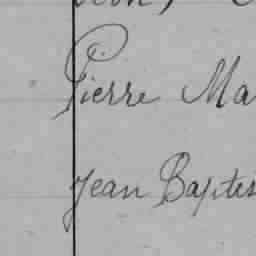 Pierre Ma
Jean Baptis